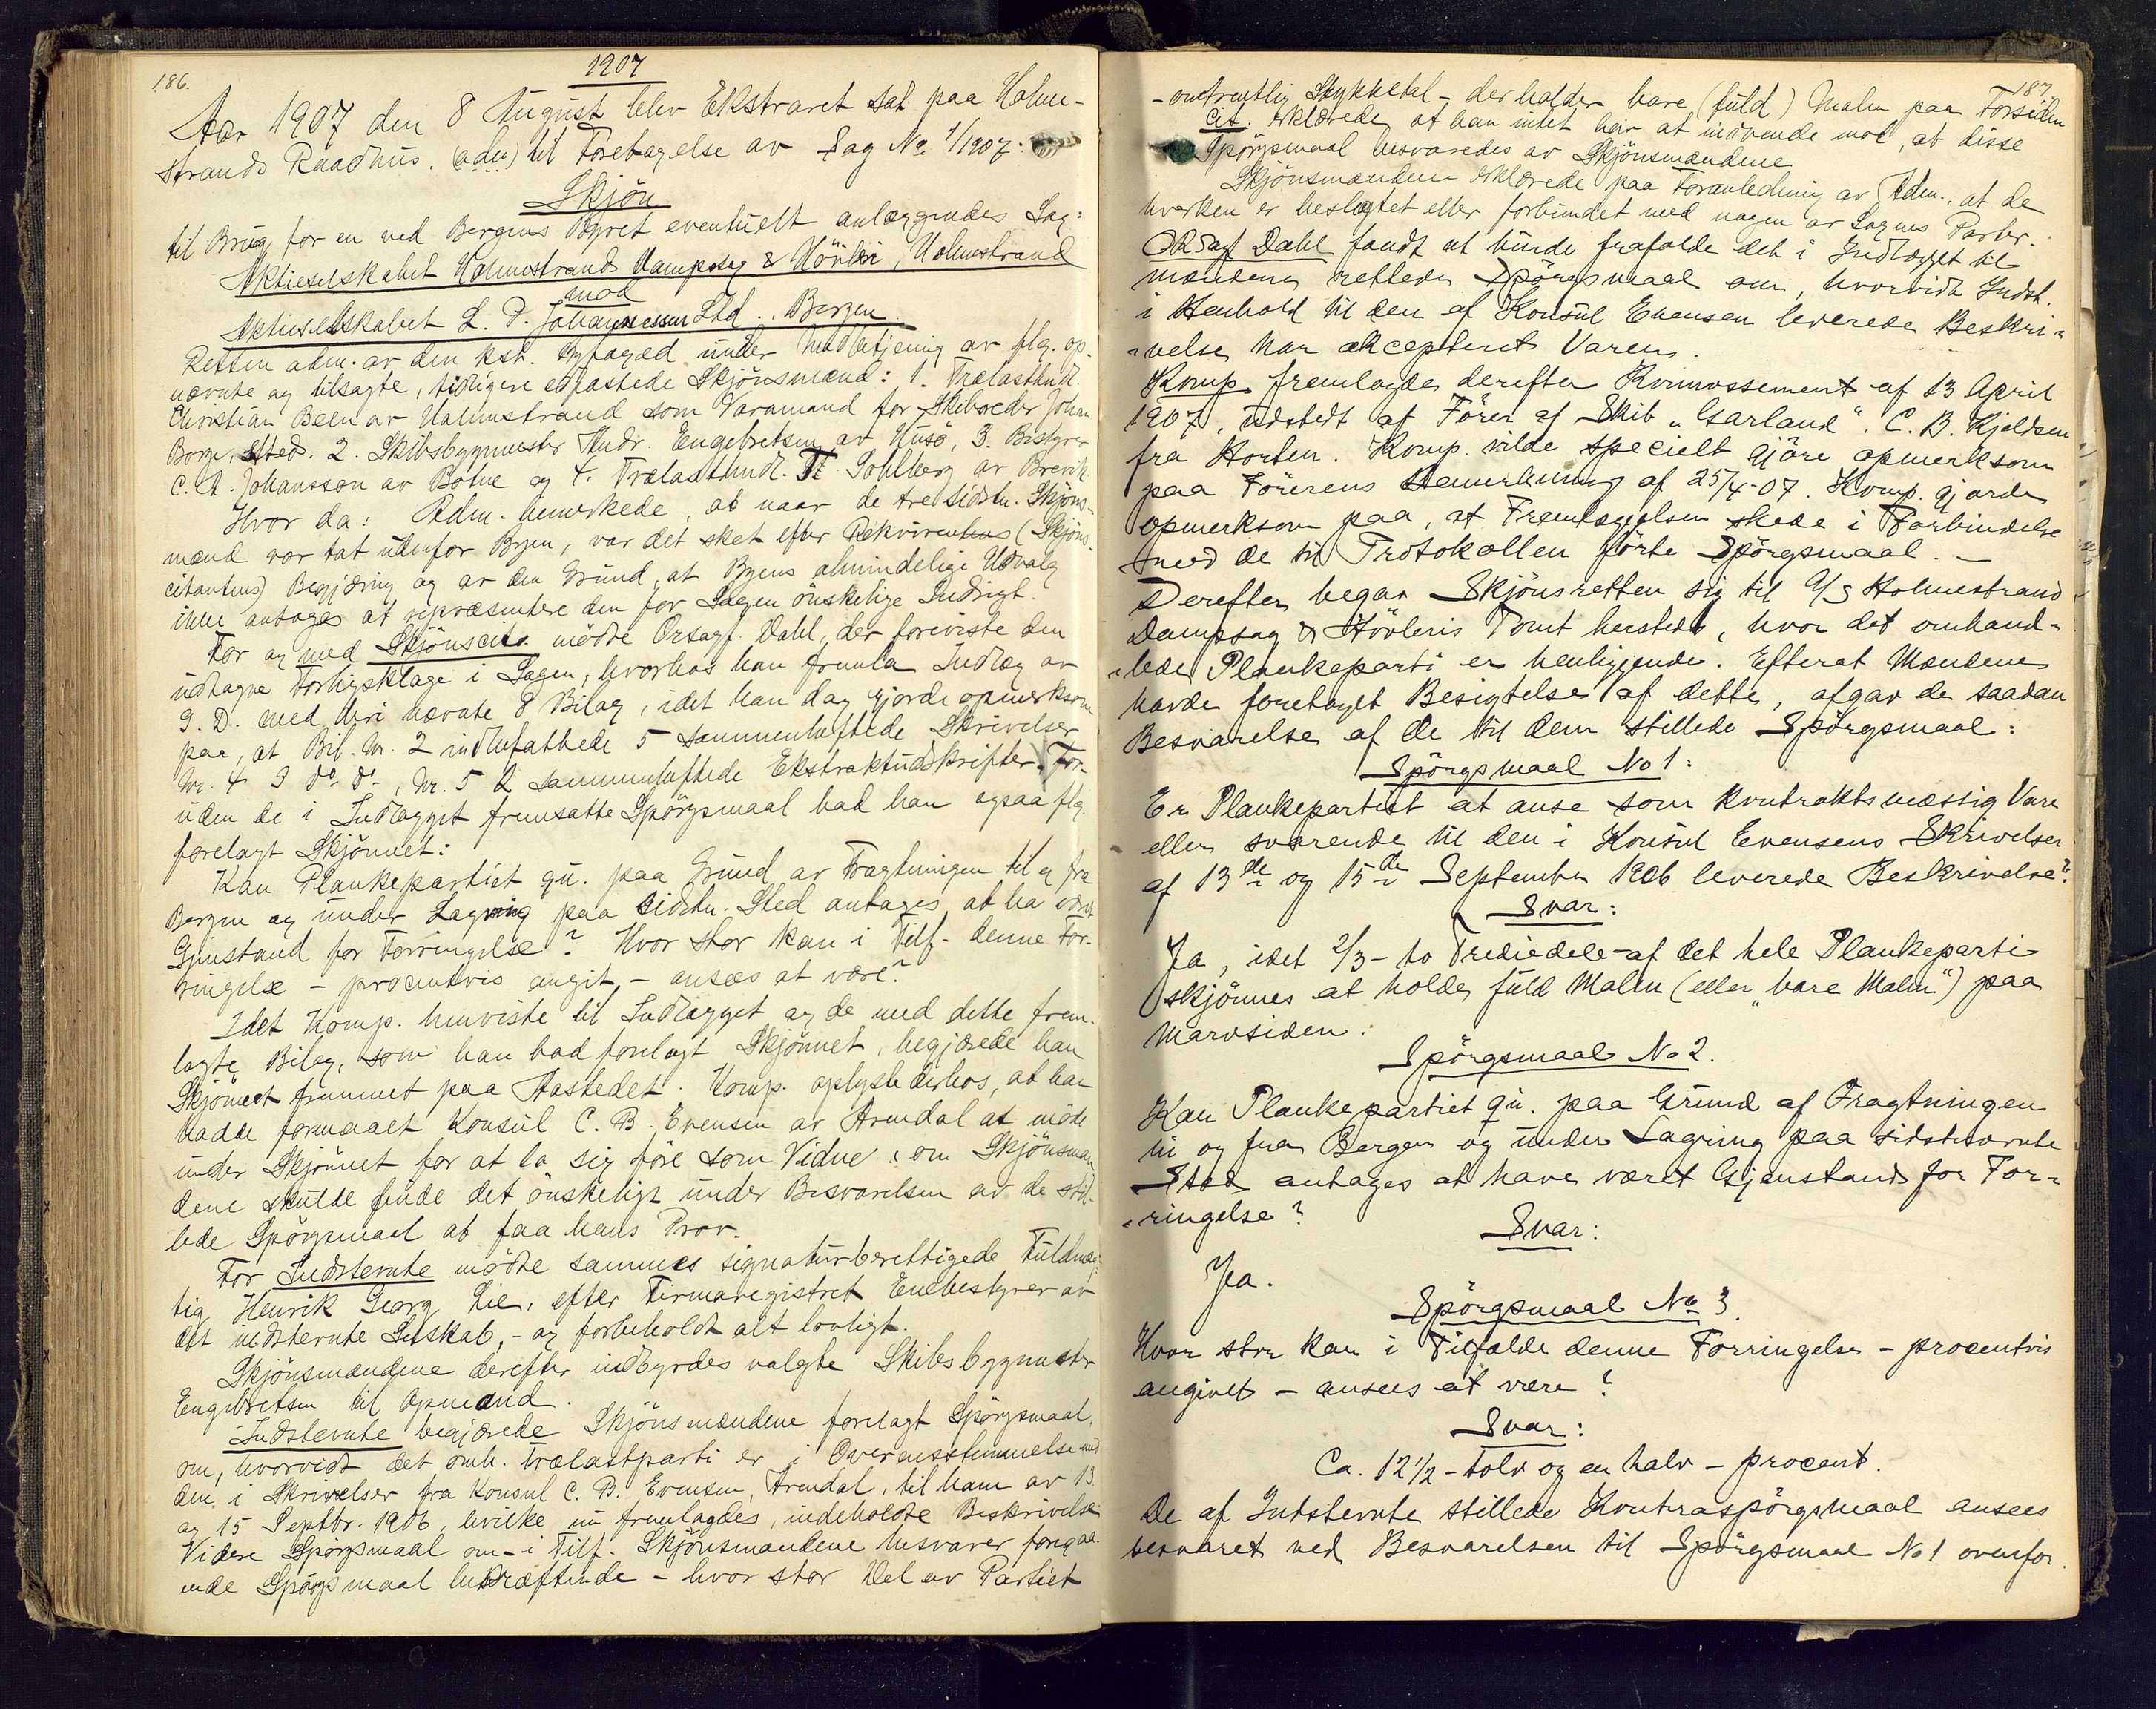 186.
1907
Aar 1907 den 8 August blev Ekstraret sat paa Holme-
strands Raadhus. (adm) til Foretagelse av Sag No 1/1907:
Skjön
til Brug for en ved Bergens Byret eventuelt anlæggendes Sag:
Aktieselskabet Holmestrands Dampsag & Hövleri, Holmestrand
mod
Aktieselskabet L. P. Johannessen Ltd., Bergen.
Retten adm. av den kst. Byfoged under Medbetjening av flg. op-
nævnte og tilsagte, tidligere edfæstede Skjönsmænd: 1. Trælasthdl.
Christian Been av Holmestrand som Varamand for Skibsreder Johan
Borge, sted. 2. Skibsbygmester Andr. Engebretsen av Husö, 3. Bestyrer
C. A. Johansson av Botne og 4. Trælasthndl. Th. Sohlberg av Brevik.
Hvor da: Adm. bemerkede, at naar de tre sidstn. Skjöns-
mænd var tat utenfor Byen, var det sket efter Rekvirentens (Skjöns-
citantens) Begjæring og av den Grund, at Byens almindelige Udvalg
ikke antages at repræsentere den for Sagen önskelige Indsigt.
For og med Skjönscita mödte Orsagf. Dahl, der foreviste den
udtagne Forligsklage i Sagen, hvorhos han fremla Indlæg av
g. D. med deri nævnte 8 Bilag, idet han dog gjorde opmerksom
paa, at Bil. Nr. 2 indbefattede 5 sammenheftede Skrivelser
Nr. 4 3 do do, Nr. 5 2 sammenheftede Ekstraktudskrifter. For-
uden de i Indlægget fremsatte Spörgsmaal bad han ogsaa flg.
forelagt Skjönnet:
Kan Plankepartiet qu. paa Grund av Fragtningen til og fra
Bergen og under Lagring paa sidstn. Sted antages at ha været
Gjenstand for Forringelse? Hvor stor kan i Tilf. denne For-
ringelse - procentvis angit, - ansees at være?
Idet Komp. henviste til Indlægget og de med dette frem-
lagte Bilag, som han bad forelagt Skjönnet, begjærede han
Skjönnet fremmet paa Aastedet. Komp. oplyste derhos, at han
hadde formaaet Konsul C. B. Evensen av Arendal at möde
under Skjönnet for at la sig före som Vidne, om Skjönsmæn
dene skulde finde det önskeligt under Besvarelsen av de stil-
lede Spörgsmaal at faa hans Prov.
For Indstevnte mödte sammes signaturberettigede Fuldmæg-
tig Henrik Georg Lie, efter Firmaregistret Enebestyrer av
det indstevnte Selskab, - og forbeholdt alt lovligt.
Skjönsmændene derefter indbyrdes valgte Skibsbygmester
Engebretsen til Opmand.
Indstevnte begjærede Skjönsmændene forelagt Spörgsmaal
om, hvorvidt det omh. Trælastparti er i Overensstemmelse med
den i Skrivelser fra Konsul C. B. Evensen, Arendal, til ham av 13
og 15 Septbr. 1906, hvilke nu fremlagdes, indeholdte Beskrivelse
Videre Spörgsmaal om - i Tilf. Skjönsmændene besvarer foregaa-
ende Spörgsmaal bekræftende - hvor stor Del av Partiet
187.
- omtrentlig Stykketal - der holder bare (fuld) Malm paa Forsiden
Cit. erklærede, at han intet har at indvende mod, at disse
Spörgsmaal besvaredes av Skjönsmændene
Skjönsmændene erklærede paa Foranledning av Adm., at de
hverken er beslægtet eller forbundet med nogen av Sagens Parter.
ORSagf Dahl fandt at burde frafalde det i Indlægget til
mændene rettede Spörgsmaal om, hvorvidt Indst.
i Henhold til den af Konsul Evensen leverede Beskri-
velse har akcepteret Varen.
Komp. fremlagde derefter Konnossement af 13 April
1907, udstedt af Förer af Skib "Garland". C. B. Kjeldsen
fra Horten. Komp. vilde specielt gjöre opmerksom
paa Förerens Bemerkning af 25/4-07. Komp. gjorde
opmerksom paa, at Fremlæggelsen skede i Forbindelse
med de til Protokollen förte Spörgsmaal. -
Derefter begav Skjönsretten sig til A/S Holmestrand
Dampsag & Hövleris Tomt hersteds, hvor det omhand-
lede Plankeparti er henliggende. Efterat Mændene
havde foretaget Besigtelse af dette, afgav de saadan
Besvarelse af de til dem stillede Spörgsmaal:
Spörgsmaal No 1:
Er Plankepartiet at anse som kontraktsmæssig Vare
eller svarende til den i Konsul Evensens Skrivelser
af 13de og 15de September 1906 leverede Beskrivelse?
Svar:
Ja, idet 2/3 - to Trediedele - af det hele Plankeparti
skjönnes at holde fuld Malm (eller "bare Malm") paa
Marvsiden.
Spörgsmaal No 2.
Kan Plankepartiet qu. paa Grund af Fragtningen
til og fra Bergen og under Lagring paa sidstnævnte
Sted antages at have været Gjenstand for For-
ringelse?
Svar:
Ja.
Spörgsmaal No 3.
Hvor stor kan i Tilfælde denne Forringelse - procentvis
angivet - ansees at være?
Svar:
Ca. 12 1/2 - tolv og en halv - procent.
De af Indstevnte stillede Kontraspörgsmaal ansees
besvaret ved Besvarelsen til Spörgsmaal No 1 ovenfor.